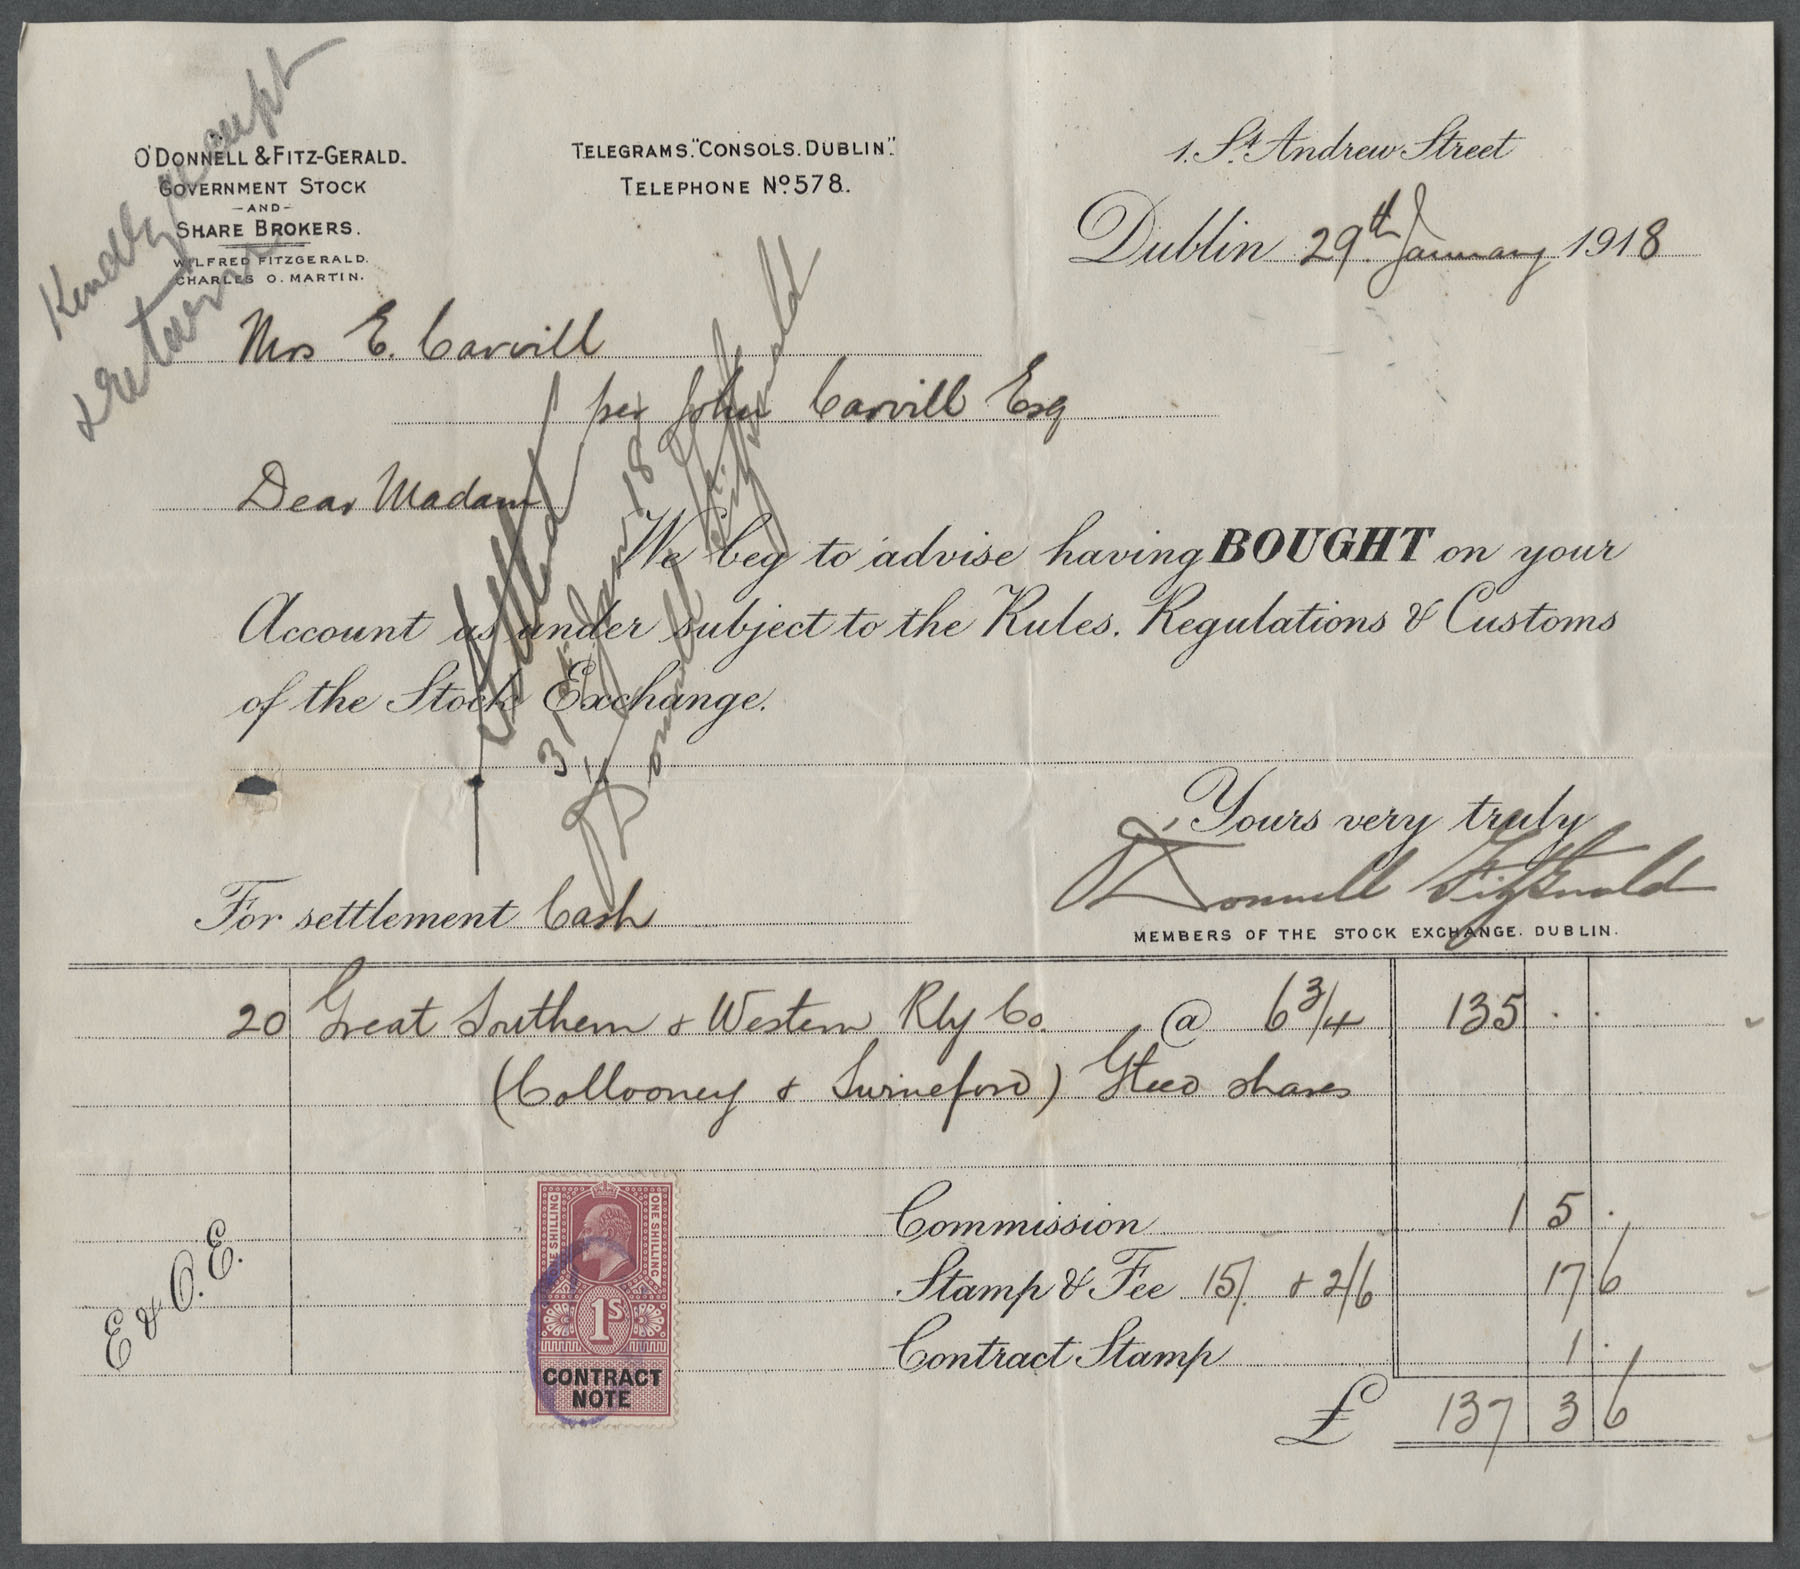 Kindly receipt
& return
O'DONNELL & FITZ-GERALD.
GOVERNMENT STOCK
-AND-
SHARE BROKERS.
WILFRED FITZGERALD.
CHARLES O. MARTIN.
TELEGRAMS. "CONSOLS. DUBLIN."
TELEPHONE No. 578.
1. St. Andrew Street
Dublin 29th January 1918
Mrs E. Carvill
per John Carvill Esq
Dear Madam
We beg to advise having BOUGHT on your
Account as under subject to the Rules. Regulations & Customs
of the Stock Exchange.
Settled
31st Jany 18
O'Donnell & Fitzgerald
Yours very truly
O'Donnell Fitzgerald
MEMBERS OF THE STOCK EXCHANGE. DUBLIN.
For settlement Cash
20 Great Southern & Western Rly Co. @ 6 3/4 135 . .
(Collooney & Swineford) Gteed shares
Commission 1 5 .
Stamp & Fee 15/. & 2/6 17 6
Contract Stamp 1 .
£ 137 3 6
E & O. E.
ONE SHILLING
ONE SHILLING
1S
CONTRACT
NOTE